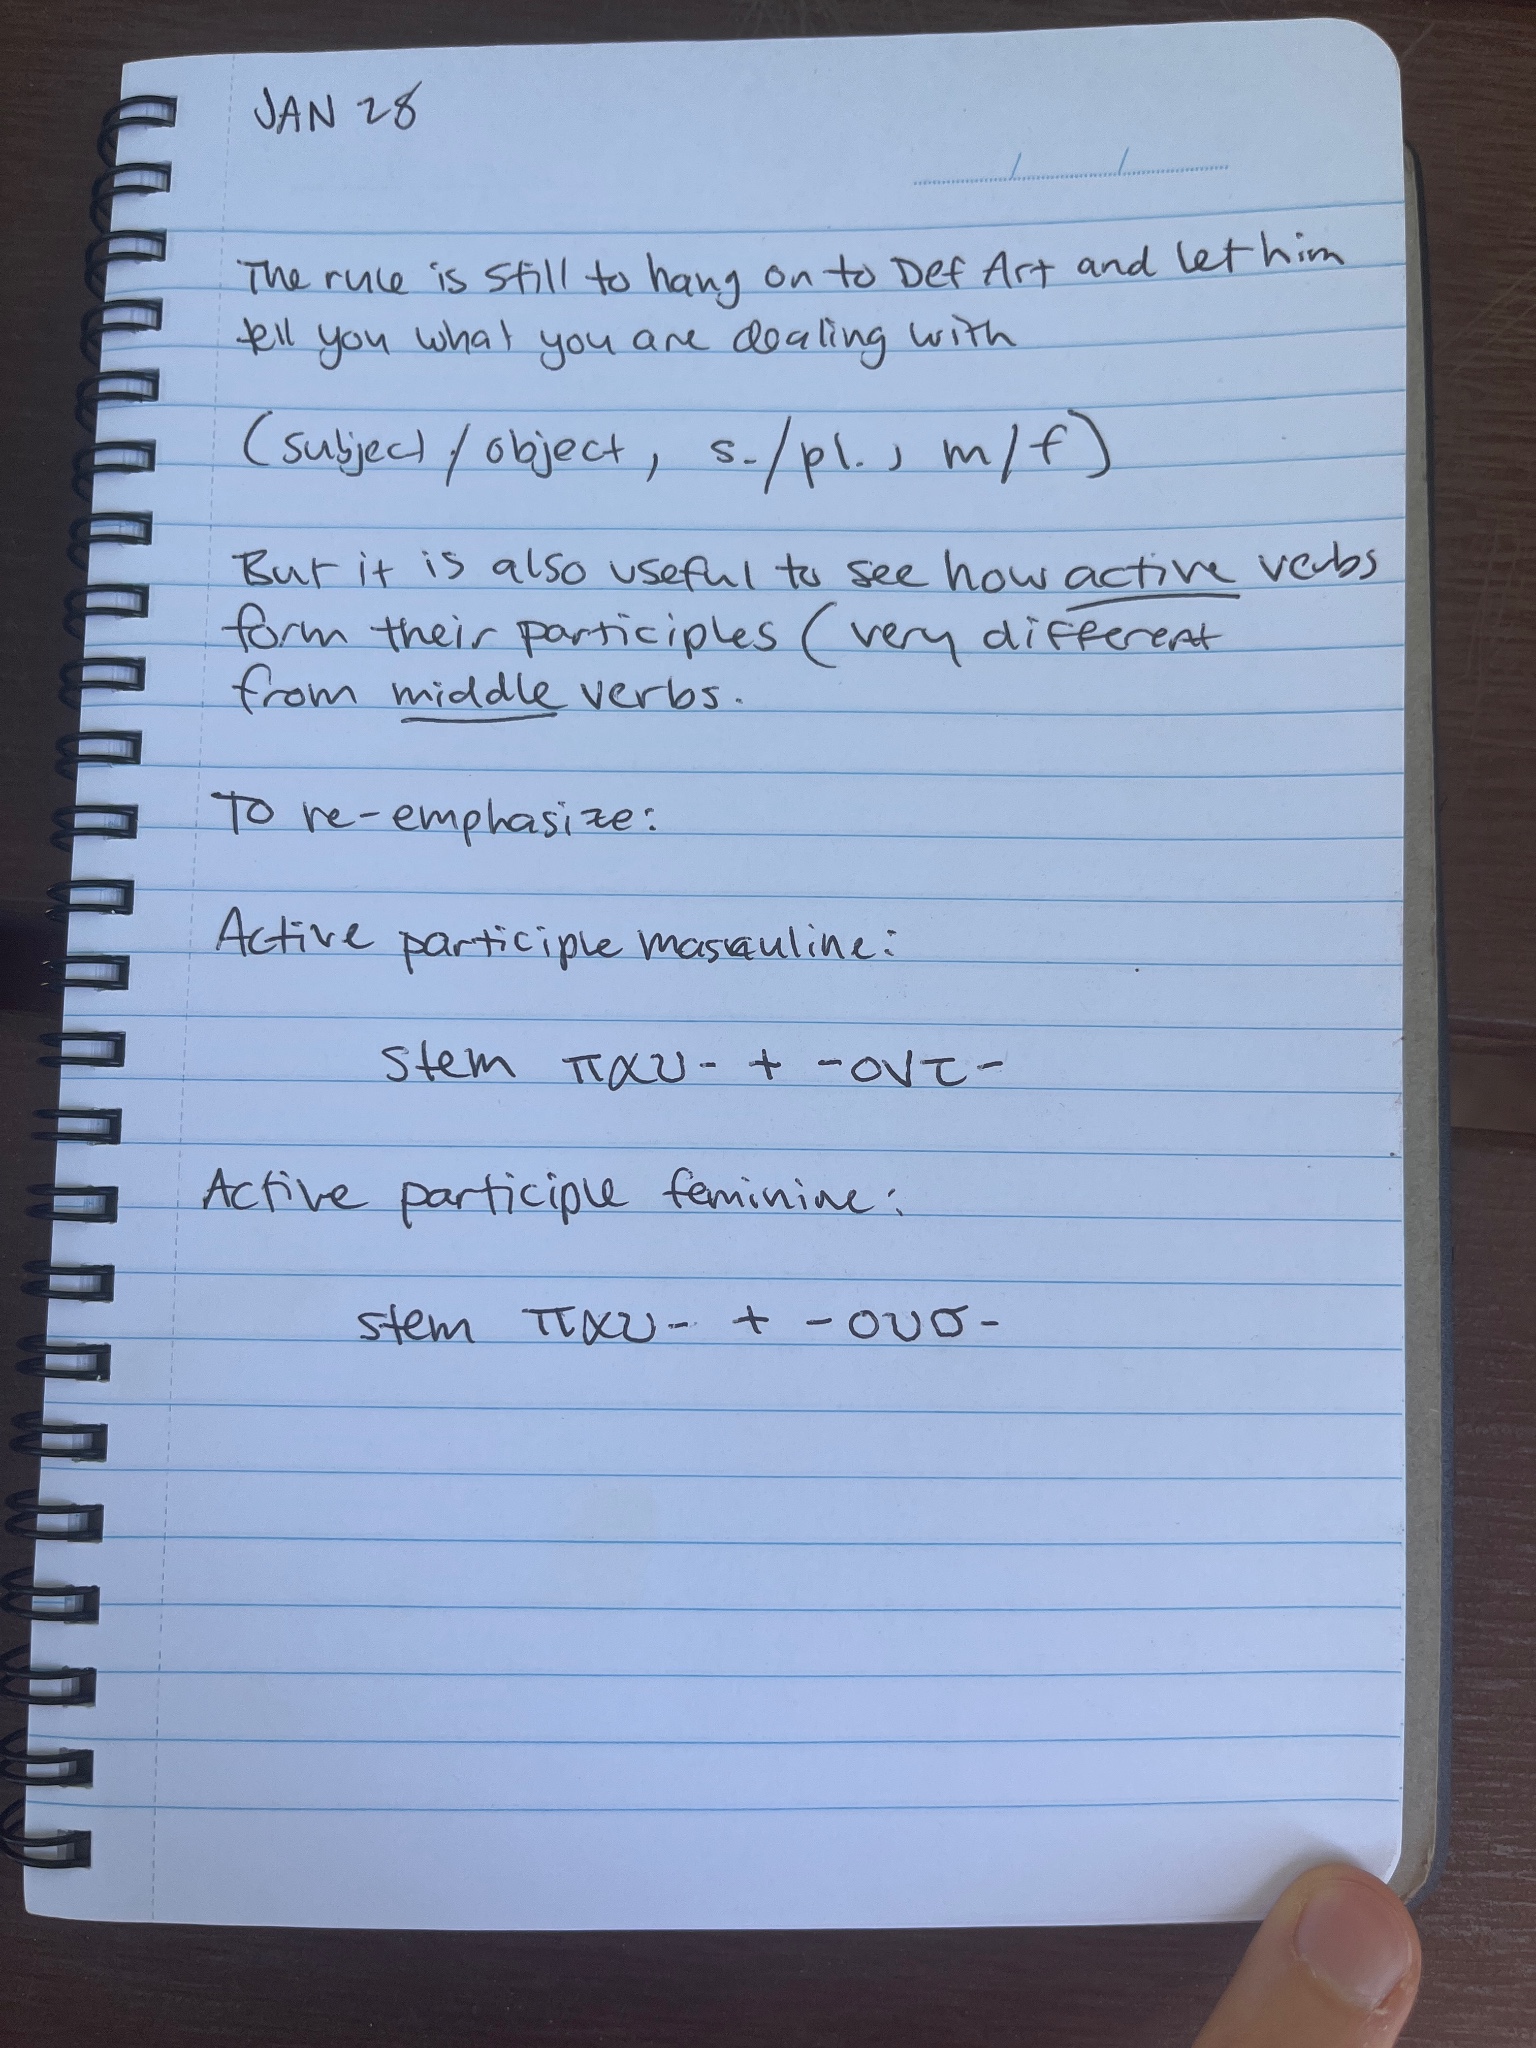 JAN 28
The rule is still to hang on to Def Art and let him
tell you what you are dealing with
(subject / object, s. / pl., m / f)
But it is also useful to see how active verbs
form their participles (very different
from middle verbs.
To re-emphasize:
Active participle masculine:
stem παυ- + -οντ-
Active participle feminine:
stem παυ- + -ουσ-